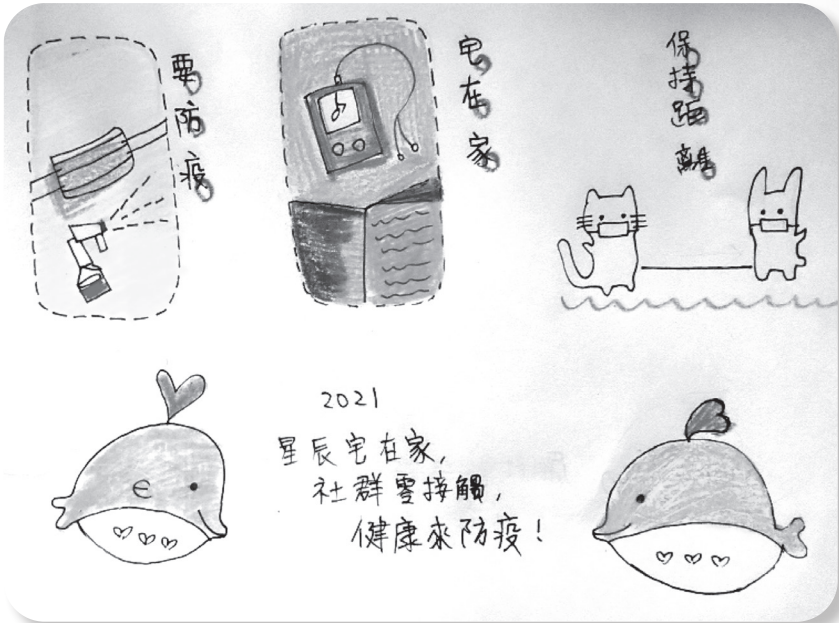 要防疫
宅在家
保持距離
2021
星辰宅在家,
社群零接觸,
健康來防疫!